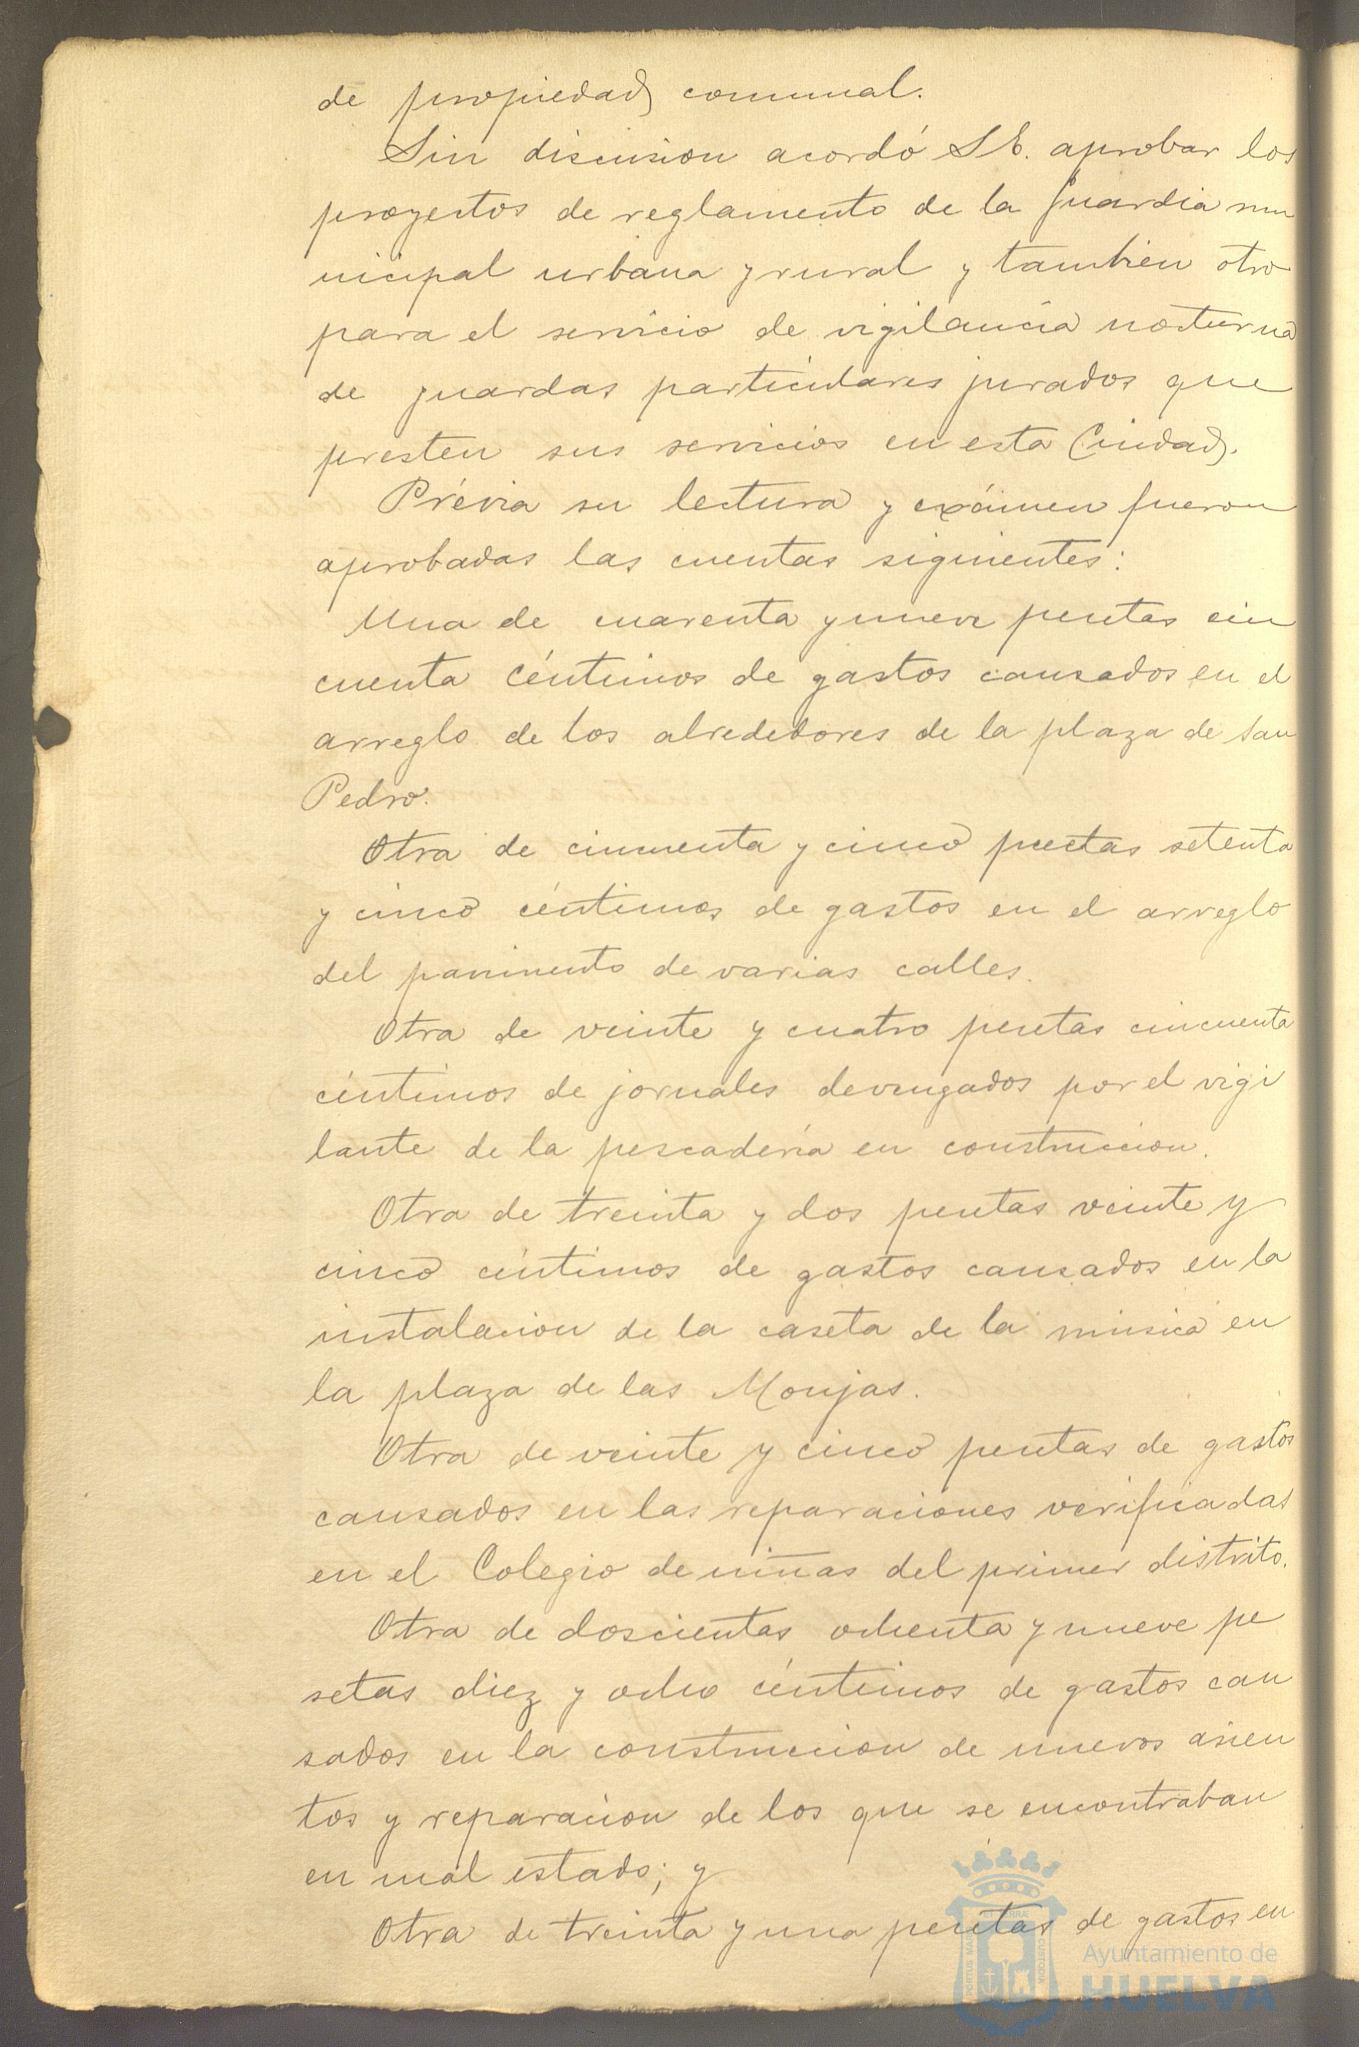 de propiedad comunal.
Sin discusion acordó S.E. aprobar los
proyectos de reglamento de la Guardia mu
nicipal urbana y rural y tambien otro
para el servicio de vigilancia nocturna
de guardas particulares jurados que
presten sus servicios en esta Ciudad.
Prévia su lectura y exámen fueron
aprobadas las cuentas siguientes:
Una de cuarenta y nueve pesetas cin
cuenta céntimos de gastos causados en el
arreglo de los alrededores de la plaza de San
Pedro.
Otra de cincuenta y cinco pesetas setenta
y cinco céntimos de gastos en el arreglo
del pavimento de varias calles.
Otra de veinte y cuatro pesetas cincuenta
céntimos de jornales devengados por el vigi
lante de la pescadería en construccion.
Otra de treinta y dos pesetas veinte y
cinco céntimos de gastos causados en la
instalacion de la caseta de la música en
la plaza de las Monjas.
Otra de veinte y cinco pesetas de gastos
causados en las reparaciones verificadas
en el Colegio de niñas del primer distrito.
Otra de doscientas ochenta y nueve pe
setas diez y ocho céntimos de gastos cau
sados en la construccion de nuevos asien
tos y reparacion de los que se encontraban
en mal estado; y
Otra de treinta y una pesetas de gastos en
Ayuntamiento de
HUELVA